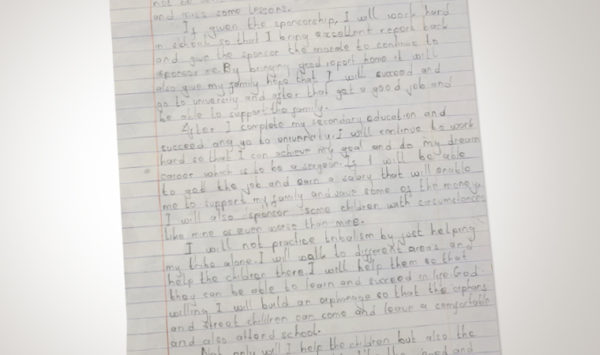 not be
and miss some lessons.
If given the sponsorship, I will work hard
in school so that I bring excellent report back
and give the sponsor the morale to continue to
sponsor me. By bringing good report home it will
also give my family hope that I will succeed and
go to university and after that get a good job and
be able to support the family.
After I complete my secondary education and
succeed and go to university, I will continue to work
hard so that I can achieve my goal and do my dream
career which is to be a surgeon. If I will be able
to get the job and earn a salary that will enable
me to support my family and save some of the money
I will also sponsor some children with circumstances
like mine or even worse than mine.
I will not practice tribalism by just helping
my tribe alone. I will walk to different areas and
help the children there. I will help them so that
they can be able to learn and succeed in life. God
willing I will build an orphanage so that the orphans
and street children can come and leave a comfortable
and also attend school.
Not only will I help the children but also the
need and